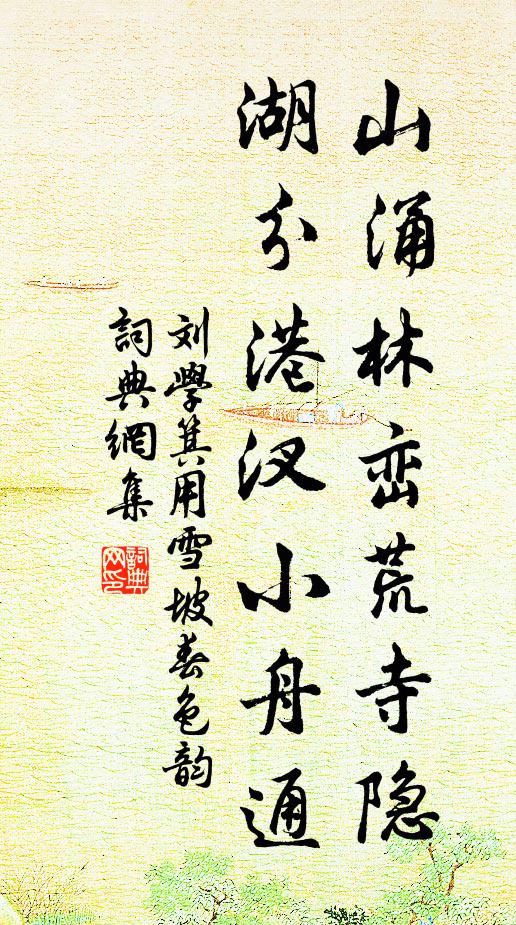 山涌林峦荒寺隐
湖分港汊小舟通
刘學箕用雪坡春色韵
詞典網集
詞典
网印